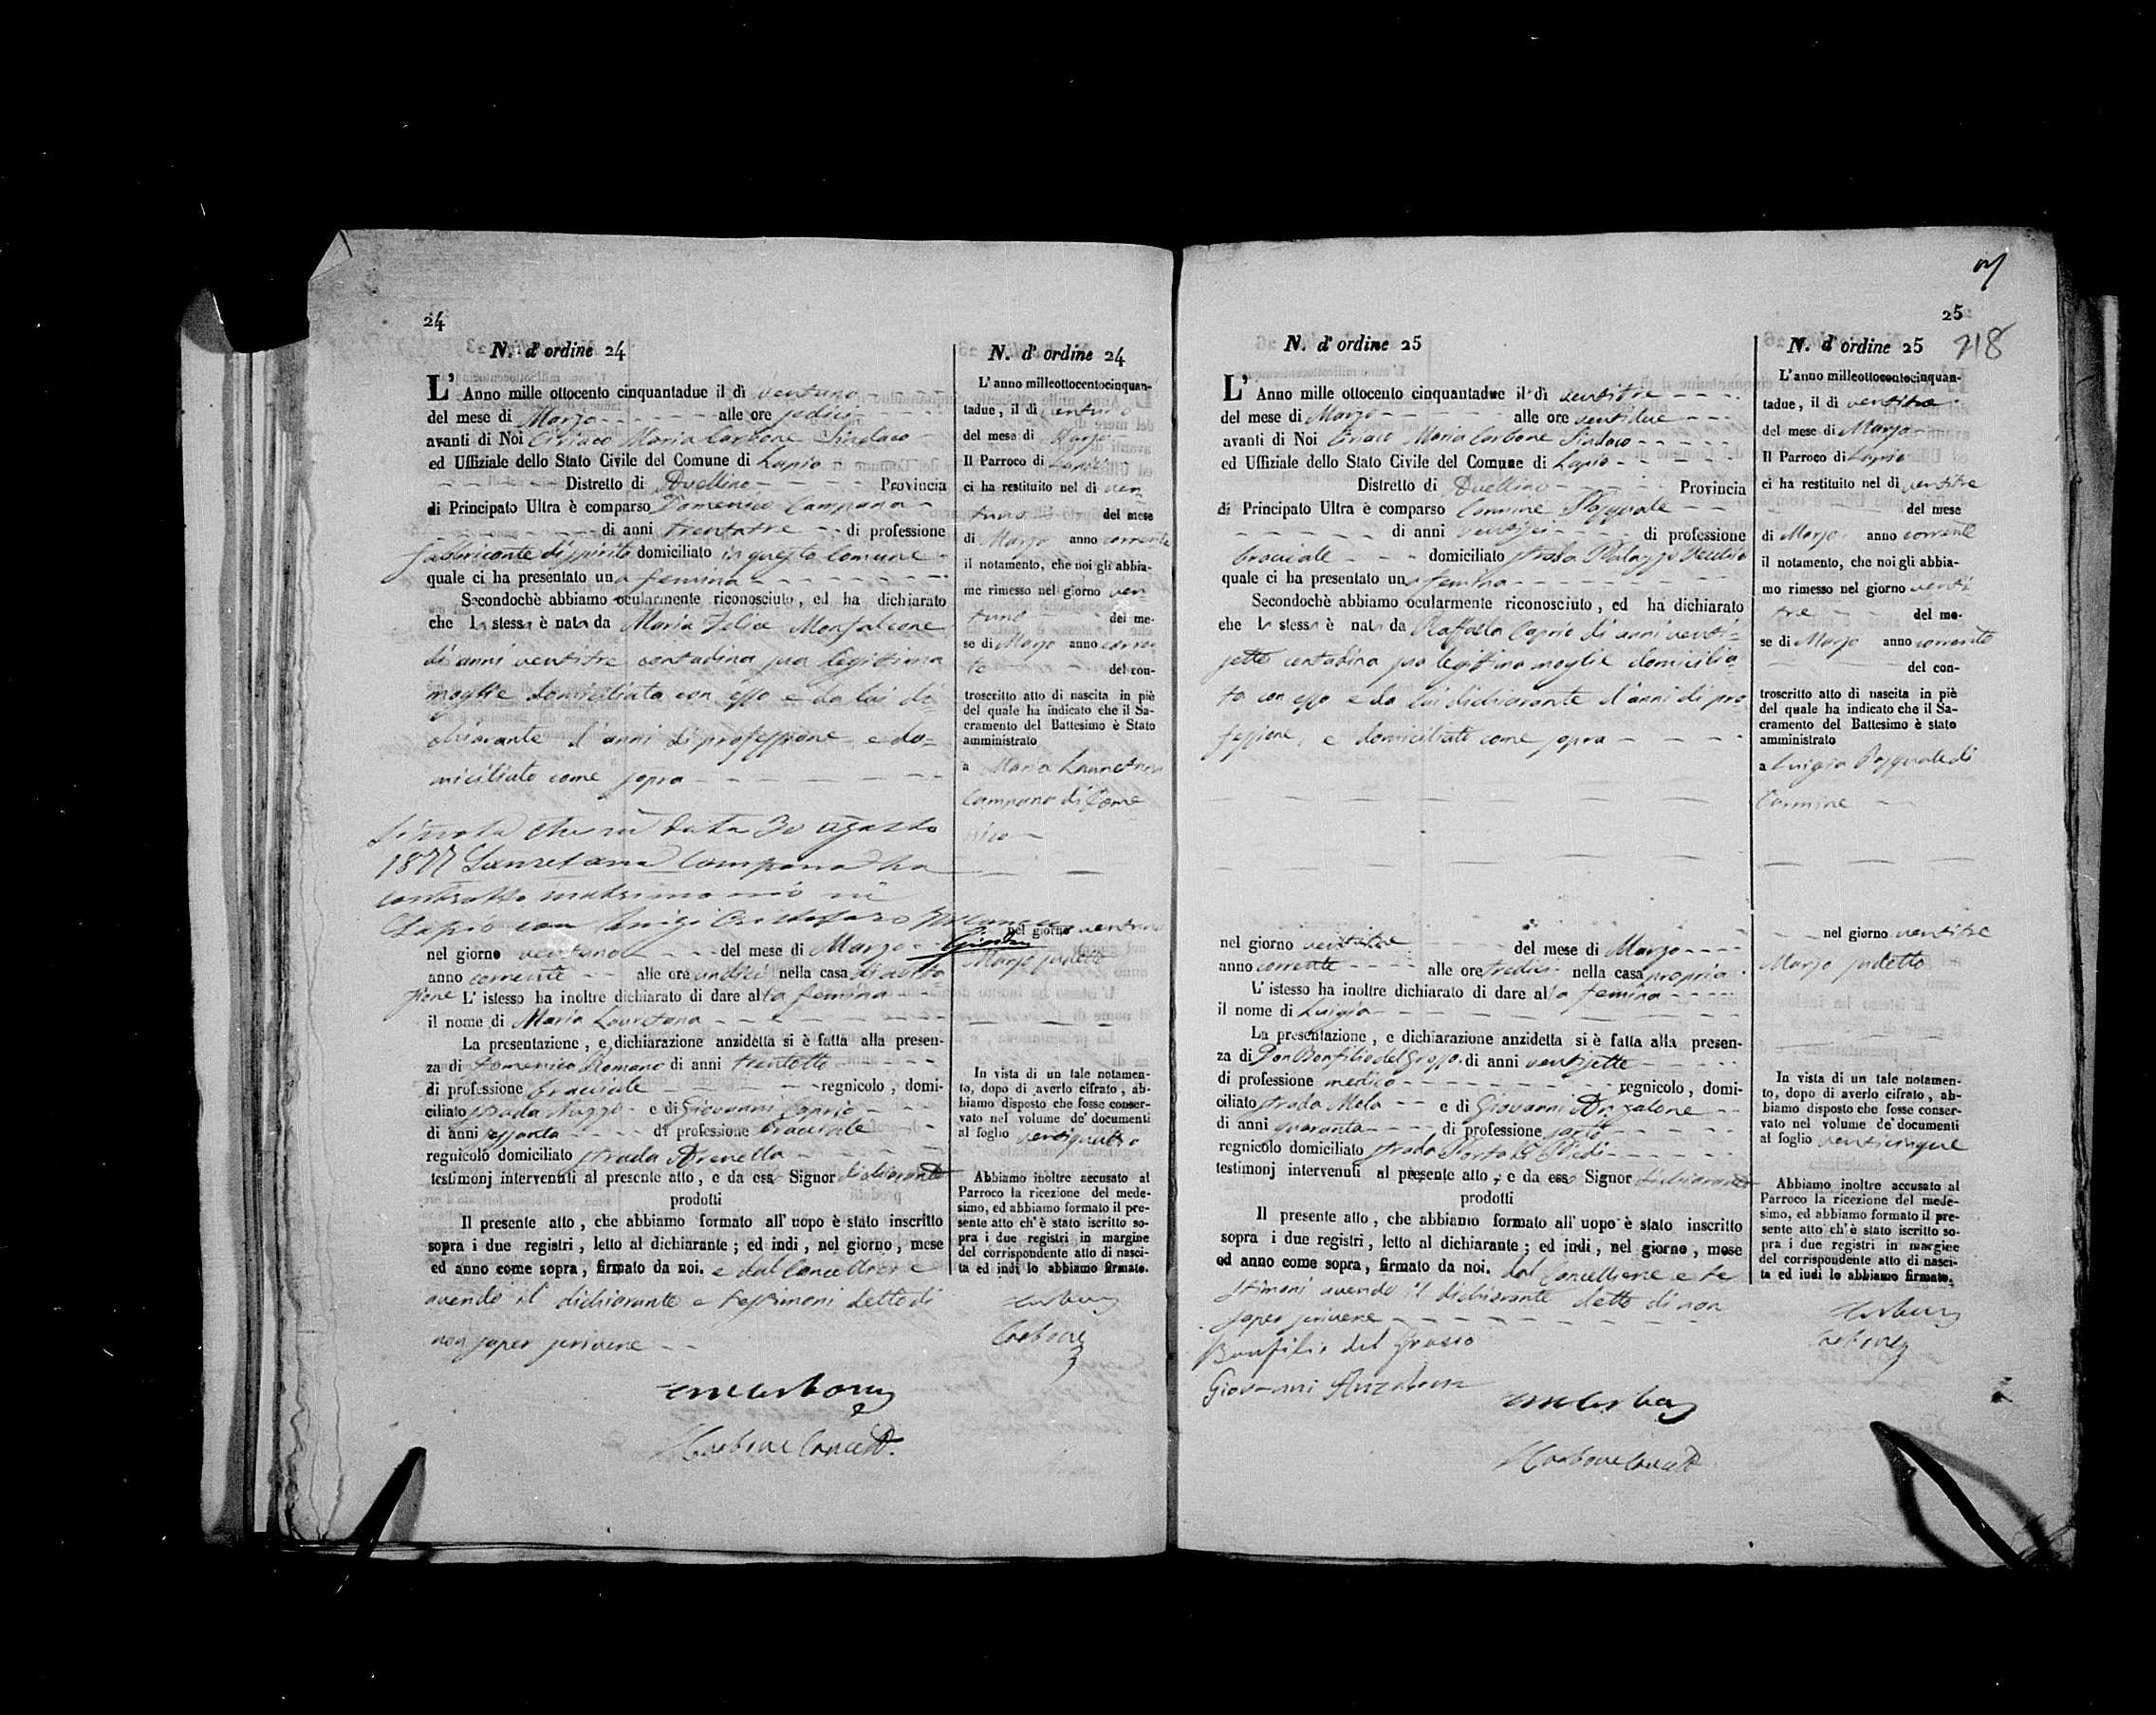 24
N. d'ordine 24
L' Anno mille ottocento cinquantadue il dì ventuno
del mese di Marzo alle ore sedici
avanti di Noi Ciriaco Maria Carbone Sindaco
ed Uffiziale dello Stato Civile del Comune di Lapio
Distretto di Avellino Provincia
di Principato Ultra è comparso Domenico Campana
di anni trentatre di professione
fabbricante di spirito domiciliato in questo Comune
quale ci ha presentato una femina
Secondochè abbiamo ocularmente riconosciuto, ed ha dichiarato
che la stessa è nata da Maria Felice Monfalcone
di anni ventitre contadina sua legittima
moglie domiciliata con esso e da lui di=
chiarante d'anni di professione e do=
miciliato come sopra
Si nota che in data 30 Agosto
1877 Lauretana Campana ha
contratto matrimonio in
Lapio con Luigi Cristofaro
nel giorno ventuno del mese di Marzo
anno corrente alle ore undici nella casa di
L' istesso ha inoltre dichiarato di dare alla femina
il nome di Maria Lauretana
La presentazione, e dichiarazione anzidetta si è fatta alla presen-
za di Domenico Romano di anni trentotto
di professione bracciale regnicolo, domi-
ciliato strada e di Giovanni Caprio
di anni sessanta di professione bracciale
regnicolo domiciliato strada Arenella
testimonj intervenuti al presente atto, e da esso Signor dichiarante
prodotti
Il presente atto, che abbiamo formato all' uopo è stato inscritto
sopra i due registri, letto al dichiarante; ed indi, nel giorno, mese
ed anno come sopra, firmato da noi. e dal Cancelliere
avendo il dichiarante e testimoni detto di
non saper scrivere
Carbone Cancell.
N. d' ordine 24
L' anno milleottocentocinquan-
tadue, il dì ventuno
del mese di Marzo
Il Parroco di Lapio
ci ha restituito nel dì ven-
tuno del mese
di Marzo anno corrente
il notamento, che noi gli abbia-
mo rimesso nel giorno ven
tuno del me-
se di Marzo anno corren
te del con-
troscritto atto di nascita in piè
del quale ha indicato che il Sa-
cramento del Battesimo è Stato
amministrato
a Maria Lauretana
Campana di Dome
nico
nel giorno ventuno
Marzo sudetto
In vista di un tale notamen-
to, dopo di averlo cifrato, ab-
biamo disposto che fosse conser-
vato nel volume de' documenti
al foglio ventiquattro
Abbiamo inoltre accusato al
Parroco la ricezione del mede-
simo, ed abbiamo formato il pre-
sente atto ch' è stato iscritto so-
pra i due registri in margine
del corrispondente atto di nasci-
ta ed indi lo abbiamo firmato.
Carbone
25
218
N. d' ordine 25
L' Anno mille ottocento cinquantadue il dì ventitre
del mese di Marzo alle ore ventidue
avanti di Noi Ciriaco Maria Carbone Sindaco
ed Uffiziale dello Stato Civile del Comune di Lapio
Distretto di Avellino Provincia
di Principato Ultra è comparso Carmine Pasquale
di anni ventisei di professione
bracciale domiciliato strada Palazzo Vecchio
quale ci ha presentato una femina
Secondochè abbiamo ocularmente riconosciuto, ed ha dichiarato
che la stessa è nata da Raffaela Caprio di anni venti=
sette contadina sua legittima moglie domicilia=
ta con esso e da lui dichiarante d'anni di pro
fessione, e domiciliato come sopra
nel giorno ventitre del mese di Marzo
anno corrente alle ore tredici nella casa propria
L' istesso ha inoltre dichiarato di dare alla femina
il nome di Luigia
La presentazione, e dichiarazione anzidetta si è fatta alla presen-
za di Don Bonfilio del Grosso di anni ventisette
di professione medico regnicolo, domi-
ciliato strada Mela e di Giovanni Anzalone
di anni quaranta di professione sarto
regnicolo domiciliato strada Porta
testimonj intervenuti al presente atto, e da esso Signor dichiarante
prodotti
Il presente atto, che abbiamo formato all' uopo è stato inscritto
sopra i due registri, letto al dichiarante; ed indi, nel giorno, mese
ed anno come sopra, firmato da noi. dal Cancelliere e te
stimoni avendo il dichiarante detto di non
saper scrivere
Bonfilio del Grosso
Giovanni Anzalone
Carbone Cancell
N. d' ordine 25
L' anno milleottocentocinquan-
tadue, il dì ventitre
del mese di Marzo
Il Parroco di Lapio
ci ha restituito nel dì ventitre
del mese
di Marzo anno corrente
il notamento, che noi gli abbia-
mo rimesso nel giorno venti
tre del me-
se di Marzo anno corrente
del con-
troscritto atto di nascita in piè
del quale ha indicato che il Sa-
cramento del Battesimo è stato
amministrato
a Luigia Pasquale di
Carmine
nel giorno ventitre
Marzo sudetto
In vista di un tale notamen-
to, dopo di averlo cifrato, ab-
biamo disposto che fosse conser-
vato nel volume de' documenti
al foglio venticinque
Abbiamo inoltre accusato al
Parroco la ricezione del mede-
simo, ed abbiamo formato il pre-
sente atto ch' è stato iscritto so-
pra i due registri in margine
del corrispondente atto di nasci-
ta ed indi lo abbiamo firmato.
Carbone